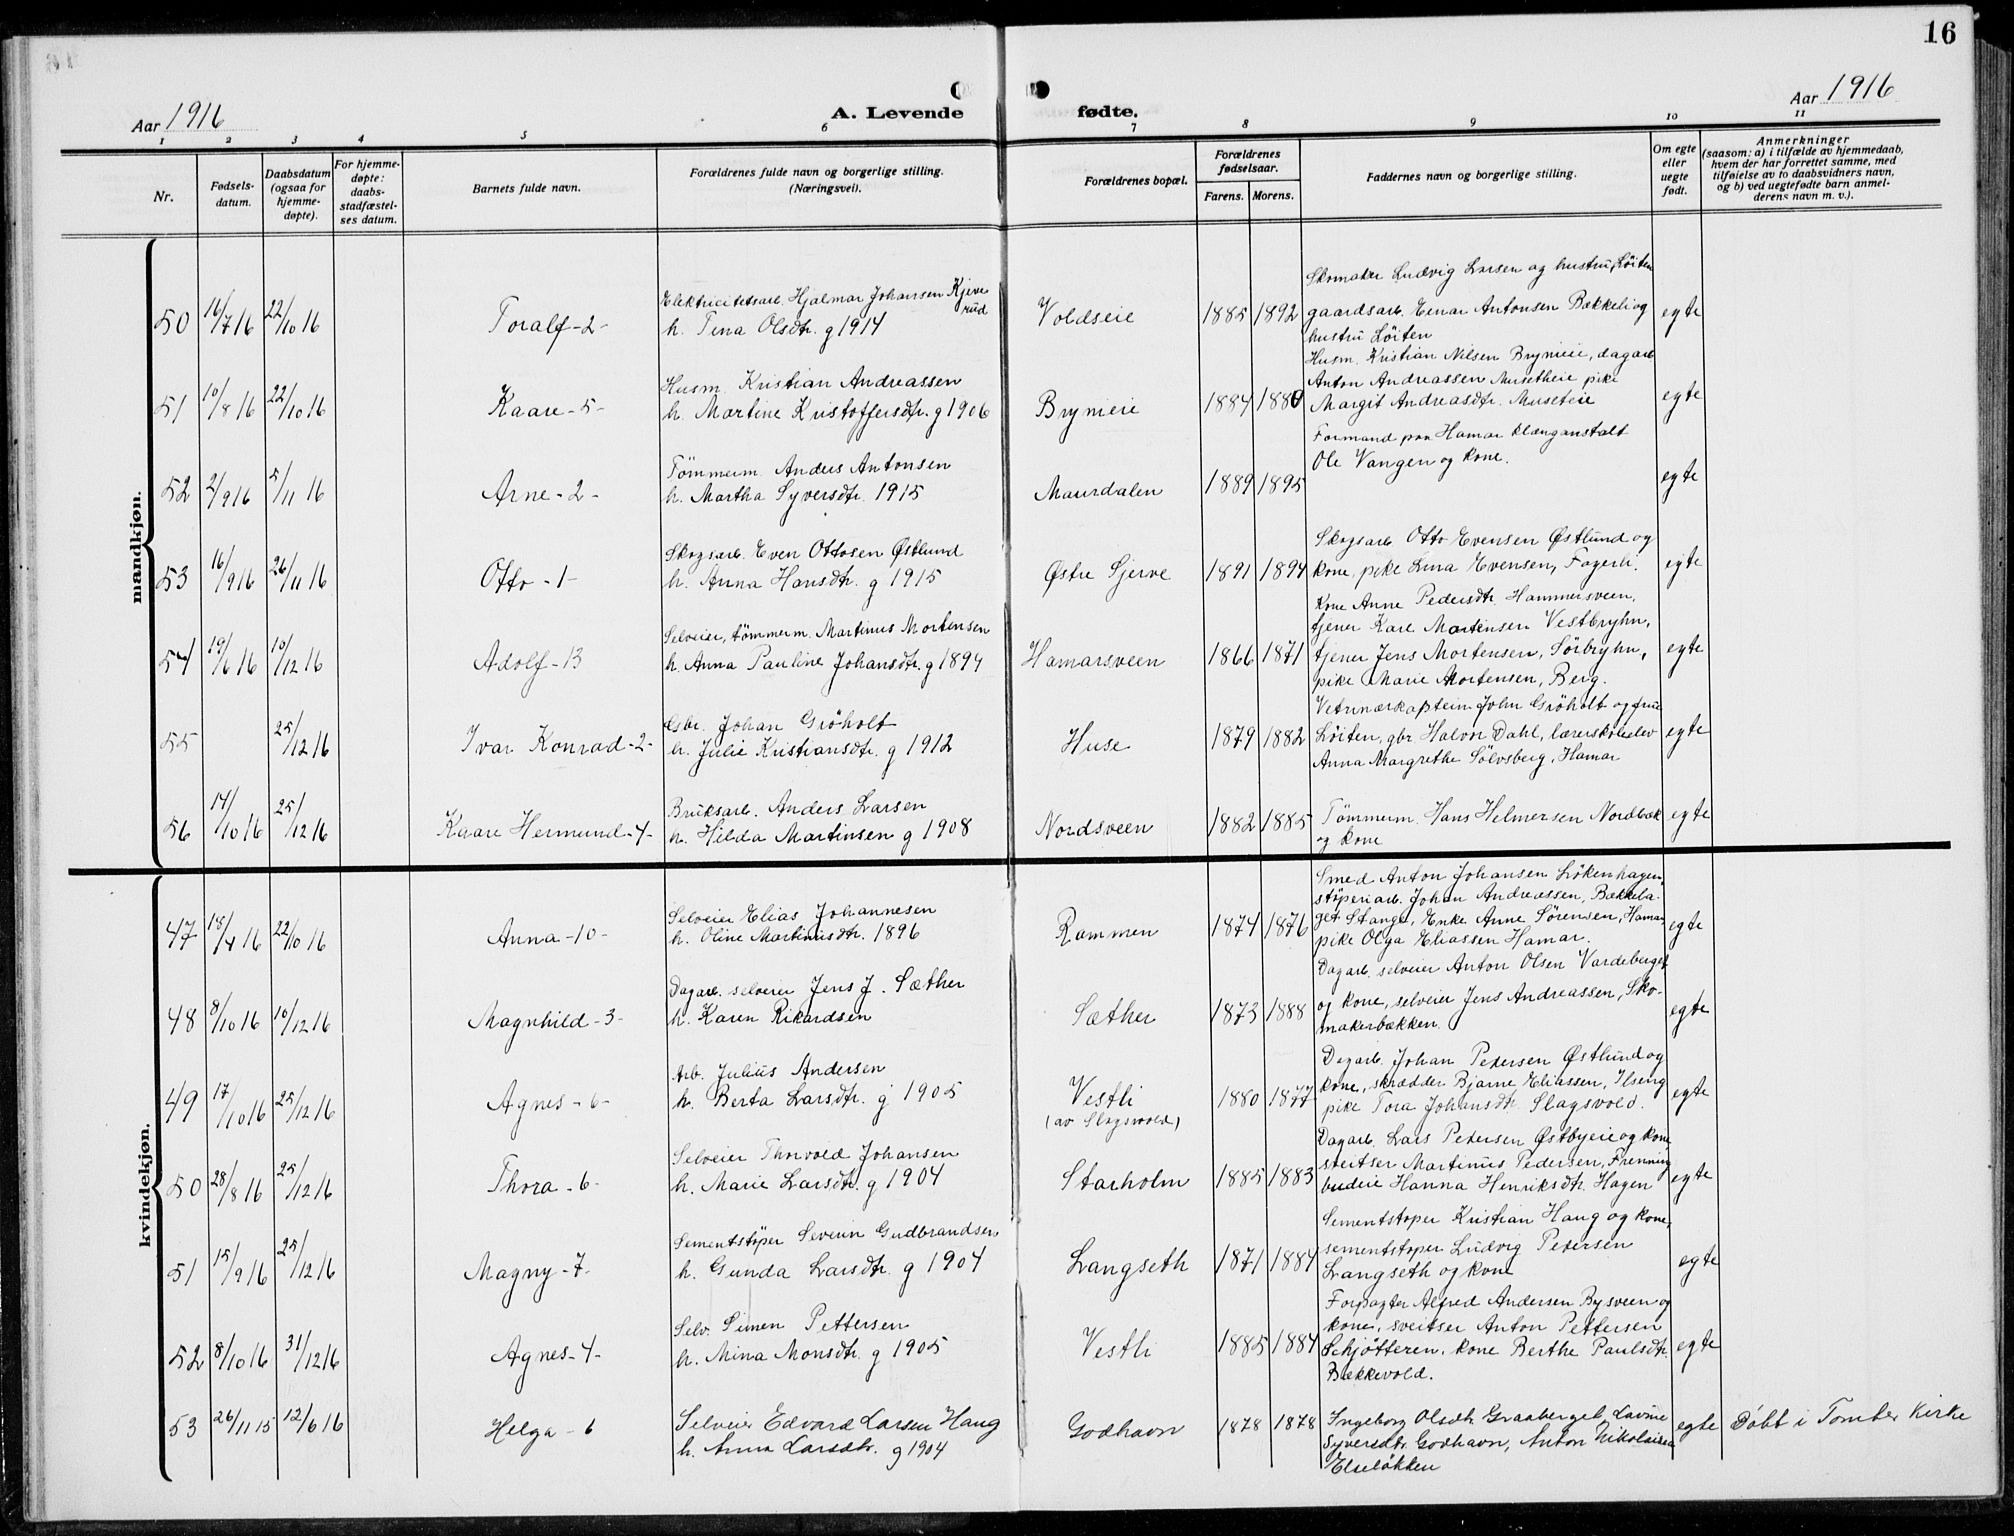 16
Aar 1916
A. Levende fødte.
Aar 1916
1 2 3 4 5 6 7 8 9 10 11
Nr.
Fødsels-
datum.
Daabsdatum
(ogsaa for
hjemme-
døpte).
For hjemme-
døpte:
daabs-
stadfæstel-
ses datum.
Barnets fulde navn.
Forældrenes fulde navn og borgerlige stilling.
(Næringsvei).
Forældrenes bopæl.
Forældrenes
fødselsaar.
Farens. Morens.
Faddernes navn og borgerlige stilling.
Om egte
eller
uegte
født.
Anmerkninger
(saasom: a) i tilfælde av hjemmedaab,
hvem der har forrettet samme, med
tilføielse av to daabsvidners navn,
og b) ved uegtefødte barn anmel-
derens navn m. v.).
mandkjøn.
50 16/7 16 22/10 16 Toralf - 2 -
Elektricitetsarb. Hjalmar Johansen Kjeve
rud
h. Tina Olsdtr. g 1914
Voldseie 1885 1892
Skomaker Ludvig Larsen og hustru, Löiten
gaardsarb. Einar Antonsen Bækkeli og
hustru Löiten
egte
51 10/8 16 22/10 16 Kaare - 5 -
Husm. Kristian Andreassen
h. Martine Kristoffersdtr. g 1906
Brynieie 1884 1880
Husm. Kristian Nilsen Brynieie, dagarb
Anton Andreassen Musetheie pike
Margit Andreasdtr. Museteie
egte
52 2/9 16 5/11 16 Arne - 2 -
Tömmerm. Anders Antonsen
h. Martha Syversdtr. 1915
Maurdalen 1889 1895
Formand paa Hamar klænganstalt
Ole Vangen og kone.
egte
53 16/9 16 26/11 16 Otto - 1 -
Skogsarb. Even Ottosen Østlund
h. Anna Hansdtr. g 1915
Østre Gjerve 1891 1894
Skogsarb Otto Evensen Østlund og
kone, pike Lina Evensen, Fagerli.
egte
54 19/6 16 10/12 16 Adolf - 13
Selveier, tömmerm. Martinus Mortensen
h. Anna Pauline Johansdtr. g 1894
Hamarsveen 1866 1871
Kone Anne Pedersdtr. Hammersveen,
tjener Kare Mortensen Vestbryhn,
tjener Jens Mortensen, Sörbryhn,
pike Marie Mortensen, Berg.
egte
55 25/12 16 Ivar Konrad - 2 -
Gbr. Johan Gröholt
h. Julie Kristiansdtr. g 1912
Huse 1879 1882
Vetrinærkaptein John Gröholt og frue
Löiten, gbr Halvor Dahl, lærerskoleelev
Anna Margrethe Sölvsberg, Hamar
egte
56 14/10 16 25/12 16 Kaare Hermund - 4 -
Bruksarb. Anders Larsen
h. Hilda Martinsen g 1908
Nordsveen 1882 1885
Tömmerm. Hans Helmersen Nordbæk
og kone
egte
kvindekjøn.
47 18/4 16 22/10 16 Anna - 10 -
Selveier Elias Johannesen
h. Oline Martinusdtr. 1896
Rammen 1874 1876
Smed Anton Johansen Lökenhagen,
stöperiarb. Johan Andreassen, Bækkela-
get Stange, Enke Anne Sörensen, Hamar,
pike Olga Eliassen Hamar.
egte
48 8/10 16 10/12 16 Magnhild - 3 -
Dagarb. selveier Jens J. Sæther
h. Karen Rikardsen
Sæther 1873 1888
Dagarb. selveier Anton Olsen Vardeberget
og kone, selveier Jens Andreassen, Sko-
makerbækken.
egte
49 17/10 16 25/12 16 Agnes - 6 -
Arb. Julius Andersen
h. Berta Larsdtr. g 1905
Vestli
(av Slagsvold)
1880 1877
Dagarb. Johan Petersen Østlund og
kone, skrædder Bjarne Eliassen, Ilseng
pike Tora Johansdtr. Slagsvold.
egte
50 28/8 16 25/12 16 Thora - 6 -
Selveier Thorvold Johansen
h. Marie Larsdtr. g 1904
Starholm 1885 1883
Dagarb. Lars Petersen Østbyeie og kone,
sveitser Martinus Pedersen, Frenning
budeie Hanna Henriksdtr. Hagen
egte
51 15/9 16 25/12 16 Magny - 7 -
Sementstöper Severin Gudbrandsen
h. Gunda Larsdtr. g 1904
Langseth 1871 1884
Sementstöper Kristian Haug og kone,
sementstöper Ludvig Petersen
Langseth og kone
egte
52 8/10 16 31/12 16 Agnes - 4 -
Selv. Simen Pettersen
h. Mina Monsdtr. g 1905
Vestli 1885 1884
Forpagter Alfred Andersen Bysveen og
kone, sveitser Anton Pettersen
Schjötteren. kone Berthe Paulsdtr.
Bækkevold.
egte
53 26/11 15 12/6 16 Helga - 6
Selveier Edvard Larsen Haug
h. Anna Larsdtr. g 1904
Godhavn 1878 1878
Ingeborg Olsdtr. Graaberget, Lavine
Syversdtr. Godhavn, Anton Nikolaisen
Elselökken
egte Döbt i Tomter Kirke